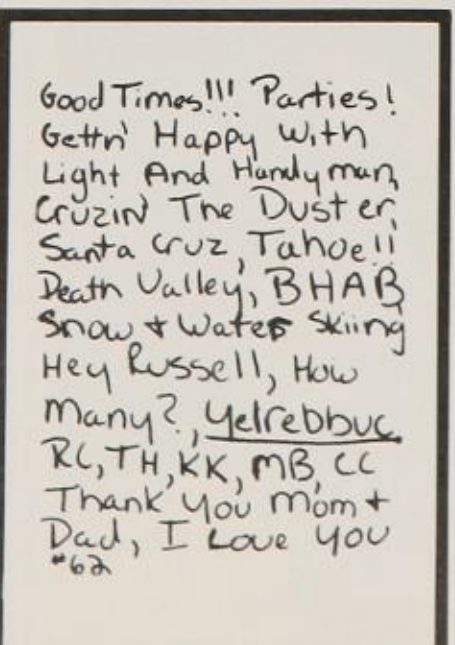 Good Times!!! Parties!
Gettn' Happy With
Light And Handyman,
Cruzin' The Duster,
Santa Cruz, Tahoe!!
Death Valley, BHAB,
Snow + Water Skiing
Hey Russell, How
Many?, Yelrebbuc
RC, TH, KK, MB, CC
Thank you Mom +
Dad, I Love You
#62